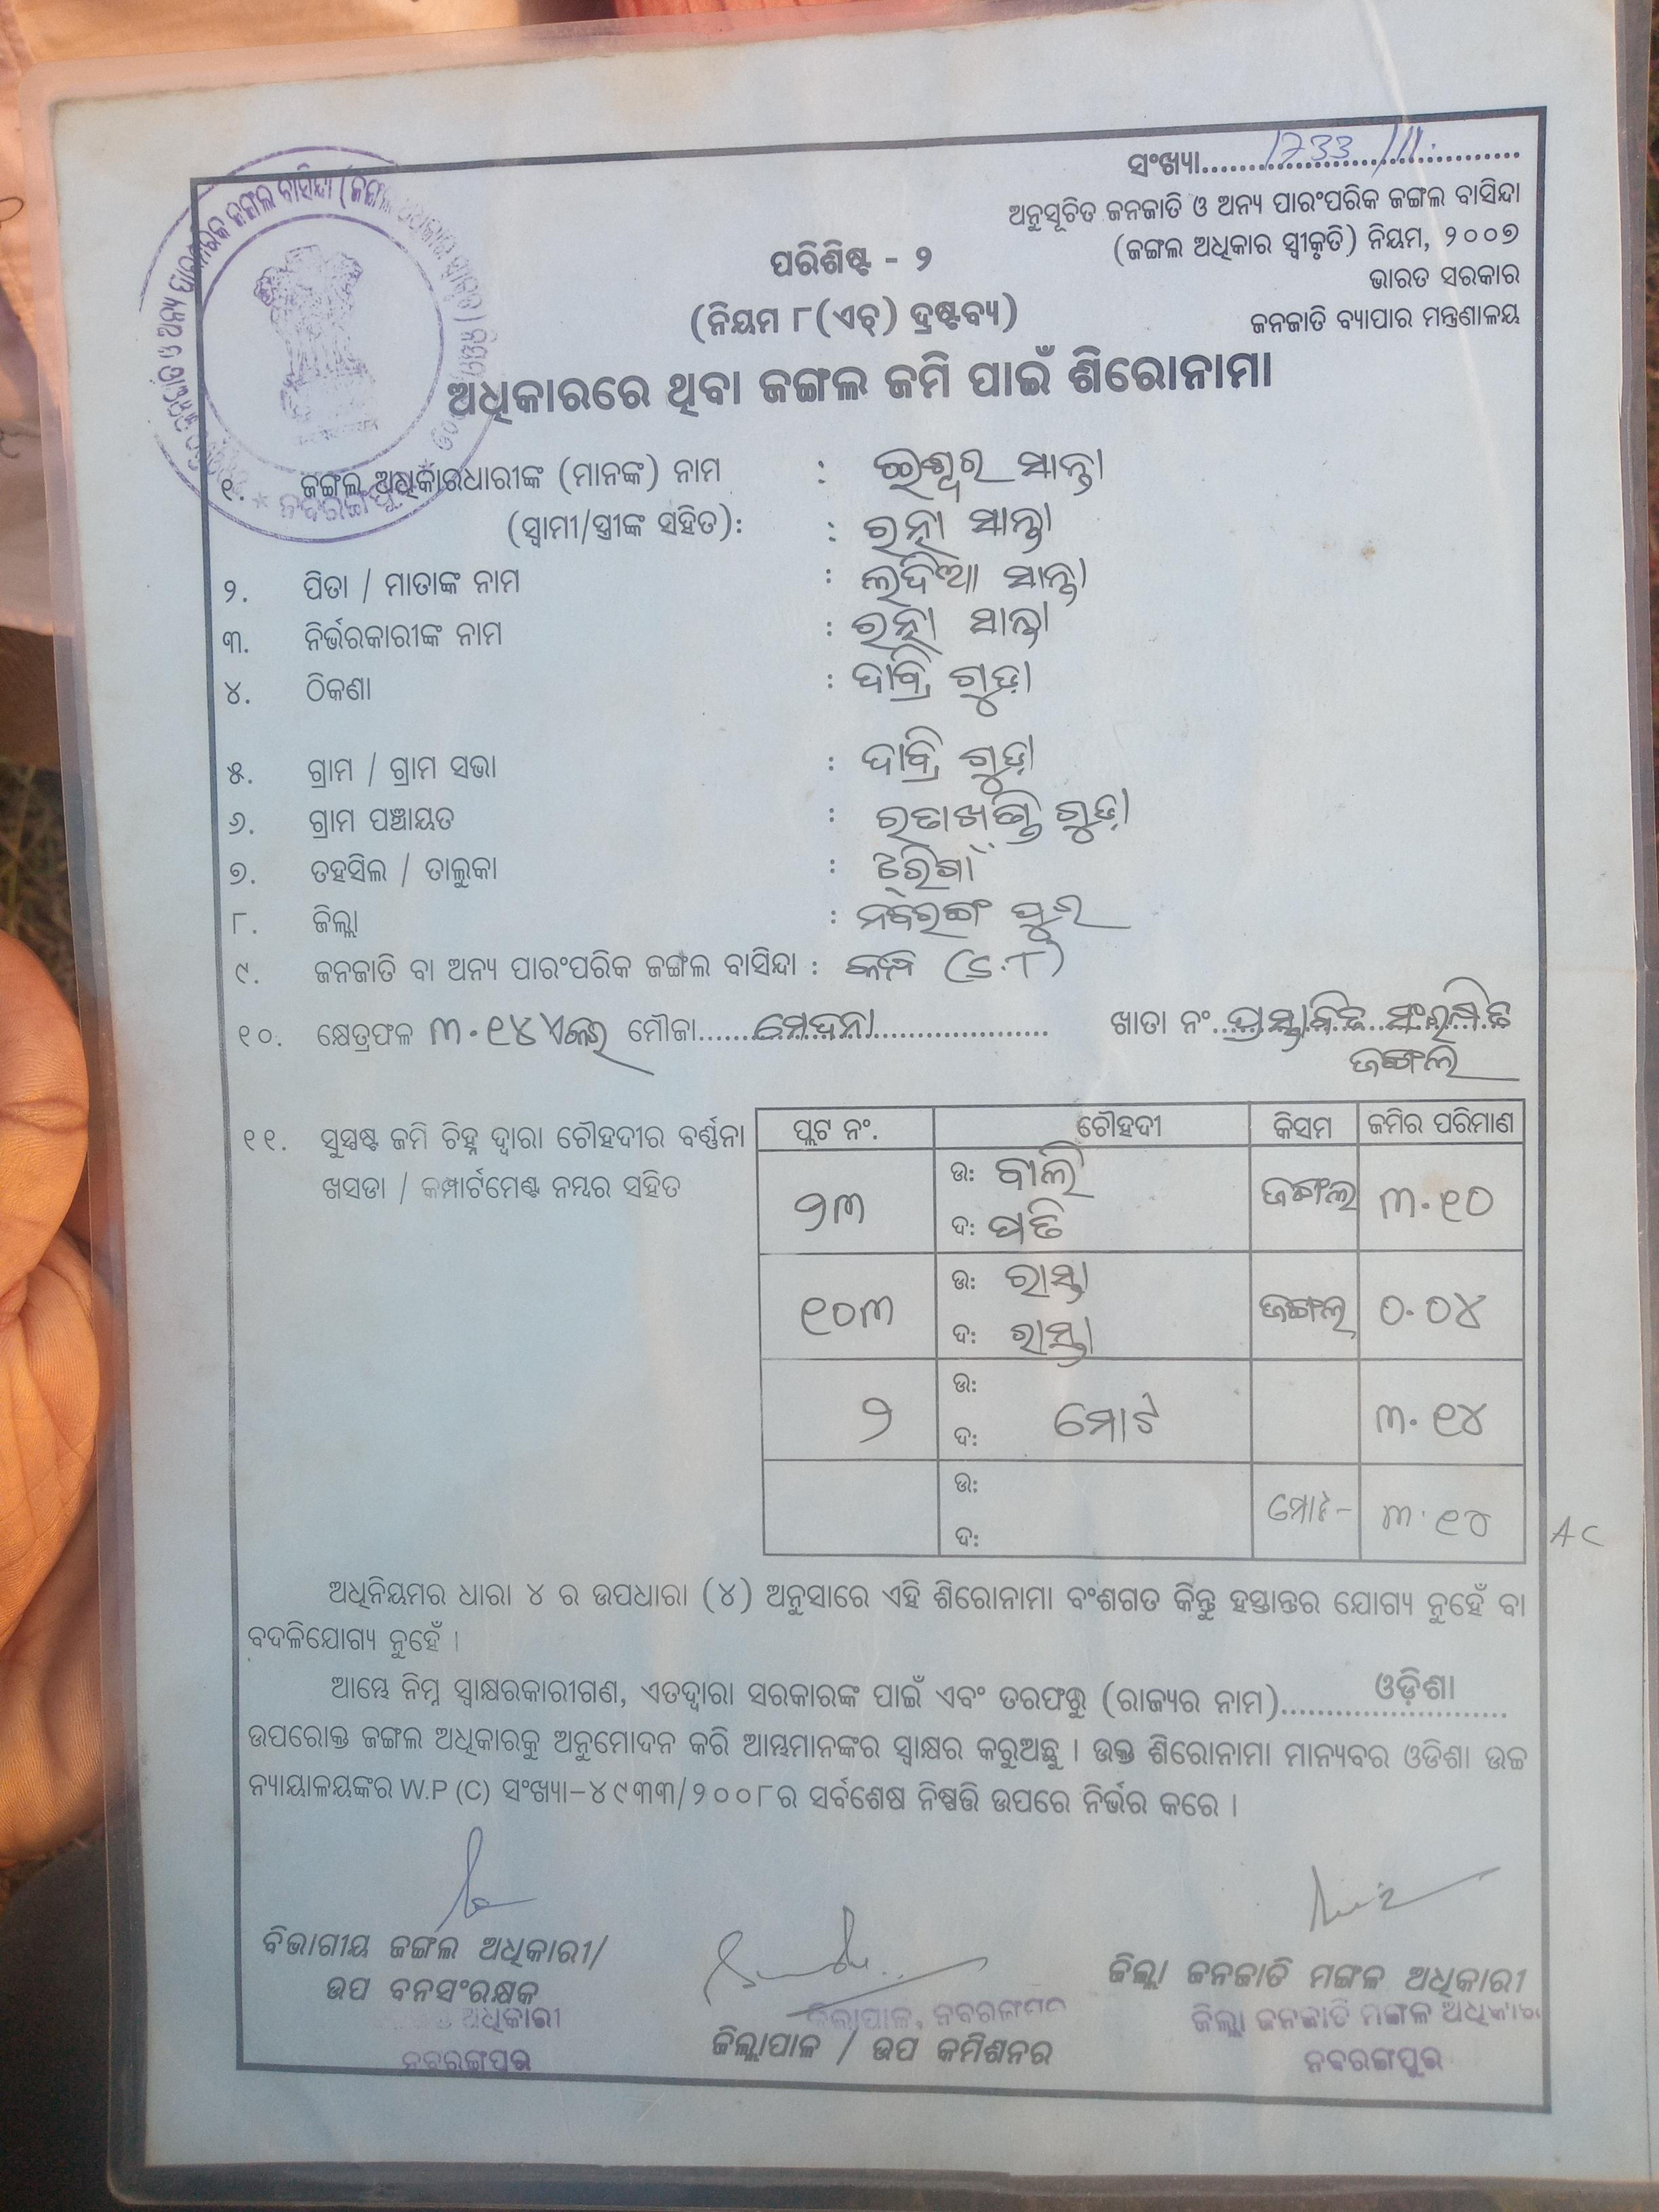 ସଂଖ୍ୟା 1733/111.
ଅନୁସୂଚିତ ଜନଜାତି ଓ ଅନ୍ୟ ପାରଂପରିକ ଜଙ୍ଗଲ ବାସିନ୍ଦା
(ଜଙ୍ଗଲ ଅଧିକାର ସ୍ୱୀକୃତି) ନିୟମ, ୨୦୦୭
ଭାରତ ସରକାର
ଜନଜାତି ବ୍ୟାପାର ମନ୍ତ୍ରଣାଳୟ
ପରିଶିଷ୍ଟ - ୨
(ନିୟମ ୮(ଏଚ୍) ଦ୍ରଷ୍ଟବ୍ୟ)
ଅଧିକାରରେ ଥିବା ଜଙ୍ଗଲ ଜମି ପାଇଁ ଶିରୋନାମା
୧. ଜଙ୍ଗଲ ଅଧିକାରଧାରୀଙ୍କ (ମାନଙ୍କ) ନାମ : ଈଶ୍ୱର ସାନ୍ତା
(ସ୍ୱାମୀ/ସ୍ତ୍ରୀଙ୍କ ସହିତ): : ରତ୍ନା ସାନ୍ତା
୨. ପିତା / ମାତାଙ୍କ ନାମ : ଲଦିଆ ସାନ୍ତା
୩. ନିର୍ଭରକାରୀଙ୍କ ନାମ : ରତ୍ନା ସାନ୍ତା
୪. ଠିକଣା : ଦାବ୍ରି ଗୁଡ଼ା
୫. ଗ୍ରାମ / ଗ୍ରାମ ସଭା : ଦାବ୍ରି ଗୁଡ଼ା
୬. ଗ୍ରାମ ପଞ୍ଚାୟତ : ରତାଖଣ୍ଡି ଗୁଡ଼ା
୭. ତହସିଲ / ତାଲୁକା :
୮. ଜିଲ୍ଲା : ନବରଙ୍ଗ ପୁର
୯. ଜନଜାତି ବା ଅନ୍ୟ ପାରଂପରିକ ଜଙ୍ଗଲ ବାସିନ୍ଦା :
୧୦. କ୍ଷେତ୍ରଫଳ ୩.୧୪ ଏକର ମୌଜା ମେଦନା ଖାତା ନଂ ପ୍ରସ୍ତାବିତ ସଂରକ୍ଷିତ
ଜଙ୍ଗଲ
୧୧. ସୁସ୍ପଷ୍ଟ ଜମି ଚିହ୍ନ ଦ୍ୱାରା ଚୌହଦୀର ବର୍ଣ୍ଣନା
ଖସଡା / କମ୍ପାର୍ଟମେଣ୍ଟ ନମ୍ବର ସହିତ
ପ୍ଲଟ ନଂ. ଚୌହଦୀ କିସମ ଜମିର ପରିମାଣ
୨୩ ଉ: ବାଲି ଜଙ୍ଗଲ ୩.୧୦
ଦ: ପତି
୧୦୩ ଉ: ରାସ୍ତା ଜଙ୍ଗଲ ୦.୦୪
ଦ: ରାସ୍ତା
୨ ଉ: ମୋଟ ୩.୧୪
ଦ:
ଉ: ମୋଟ- ୩.୧୪ AC
ଦ:
ଅଧିନିୟମର ଧାରା ୪ ର ଉପଧାରା (୪) ଅନୁସାରେ ଏହି ଶିରୋନାମା ବଂଶଗତ କିନ୍ତୁ ହସ୍ତାନ୍ତର ଯୋଗ୍ୟ ନୁହେଁ ବା
ବଦଳିଯୋଗ୍ୟ ନୁହେଁ ।
ଆମ୍ଭେ ନିମ୍ନ ସ୍ୱାକ୍ଷରକାରୀଗଣ, ଏତଦ୍ୱାରା ସରକାରଙ୍କ ପାଇଁ ଏବଂ ତରଫରୁ (ରାଜ୍ୟର ନାମ) ଓଡ଼ିଶା
ଉପରୋକ୍ତ ଜଙ୍ଗଲ ଅଧିକାରକୁ ଅନୁମୋଦନ କରି ଆମ୍ଭମାନଙ୍କର ସ୍ୱାକ୍ଷର କରୁଅଛୁ । ଉକ୍ତ ଶିରୋନାମା ମାନ୍ୟବର ଓଡିଶା ଉଚ୍ଚ
ନ୍ୟାୟାଳୟଙ୍କର W.P (C) ସଂଖ୍ୟା-୪୯୩୩/୨୦୦୮ର ସର୍ବଶେଷ ନିଷ୍ପତ୍ତି ଉପରେ ନିର୍ଭର କରେ ।
ବିଭାଗୀୟ ଜଙ୍ଗଲ ଅଧିକାରୀ/
ଉପ ବନସଂରକ୍ଷକ
ଅଧିକାରୀ
ନବରଙ୍ଗପୁର
ଜିଲାପାଳ, ନବରଙ୍ଗପୁର
ଜିଲ୍ଲାପାଳ / ଉପ କମିଶନର
ଜିଲ୍ଲା ଜନଜାତି ମଙ୍ଗଳ ଅଧିକାରୀ
ଜିଲ୍ଲା ଜନଜାତି ମଙ୍ଗଳ ଅଧିକାରୀ
ନବରଙ୍ଗପୁର